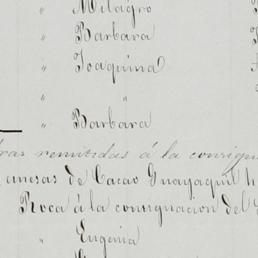 " Milagro
" Barbara
" Joaquina
" "
" Barbara
remitidas á la consign
de Cacao Guayaquil
Roca á la consignacion del
" Eugenia